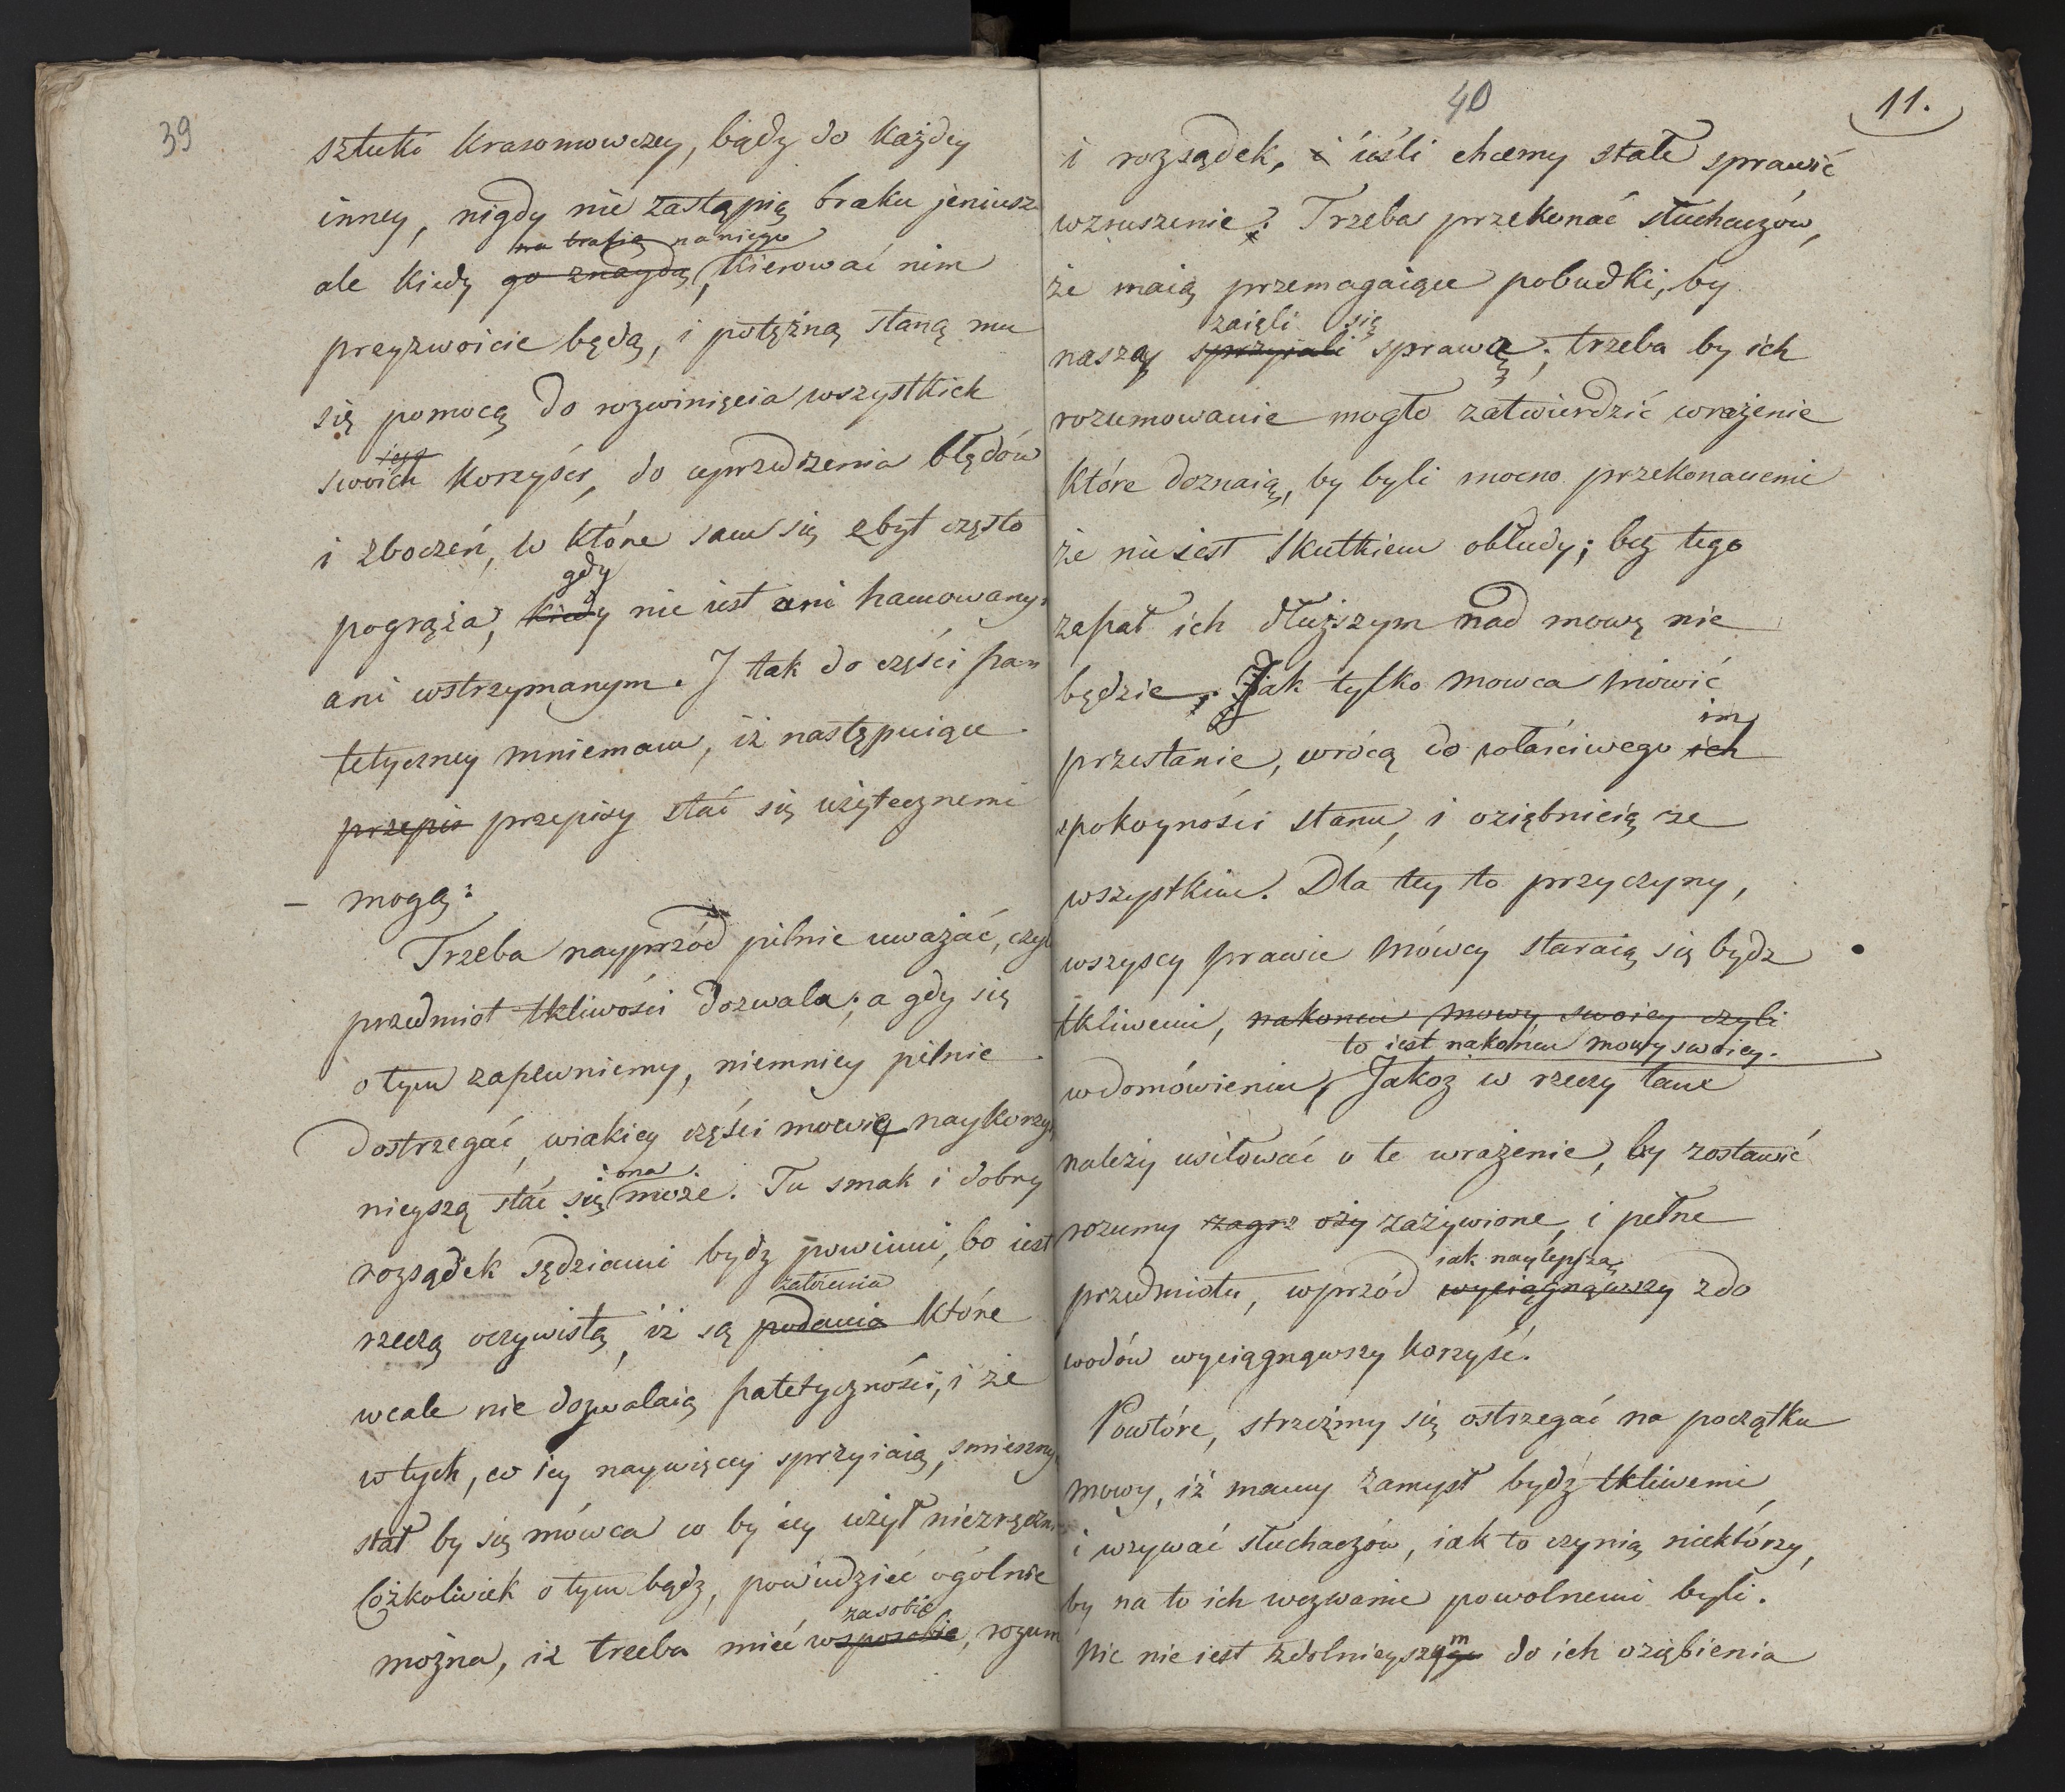 39
sztuki krasomowczey, bądź do każdey
inney, nigdy nie zastąpią braku jeniusz
na trafią na niego
ale kiedy go znaydą, kierować nim
przyzwoicie będą, i potężną staną mu
się pomocą do rozwinięcia wszystkich
iego
swoich korzyści, do uprzedzenia błędów
i zboczeń, w które sam się zbyt często
gdy
pogrąża, kiedy nie iest ani hamowany
ani wstrzymanym. I tak do części pa-
tetyczney mniemam, iż następuiące
przepis przepisy stać się użytecznemi
— mogą:
Trzeba nayprzód pilnie uważać, czyli
przedmiot tkliwości dozwala; a gdy się
o tym zapewniemy, niemniey pilnie
dostrzegać, wiakiey części mowy naykorzy
ona
nieyszą stać się może. Tu smak i dobry
rozsądek sędziami bydź powinni, bo iest
założenia
rzeczą oczywistą, iż są podania które
wcale nie dozwalaią patetyczności, i że
w tych, co iey naywięcey sprzyiaią, smieszny
stał by się mówca co by iey użył niezręczn
Cóżkolwiek o tym bądź, powiedzieć ogólnie
zasobie
można, iż trzeba mieć wsposobie, rozum
40
11.
i rozsądek, i ieśli chcemy stałe sprawić
wzruszenie. Trzeba przekonać słuchaczów,
że maią przemagaiące pobudki, by
zaięli się
naszą sprzyiali sprawą; trzeba by ich
rozumowanie mogło zatwierdzić wrażenie
które doznaią, by byli mocno przekonanemi
że nie iest skutkiem obłudy; bez tego
zapał ich dłuższym nad mowę nie
będzie. Jak tylko mowca mówić
im
przestanie, wrócą do właściwego ich
spokoyności stanu, i oziębnieią ze
wszystkim. Dla tey to przyczyny,
wszyscy prawie mówcy staraią się bydz
tkliwemi, nakoncu mowy swoiey czyli
to iest nakońcu mowy swoiey.
wdomówieniu, Jakoż w rzeczy same
należy usiłować o te wrażenie, by zostawić
rozumy zagrz oży zażywione, i pełne
iak naylepszą
przedmiotu, wprzód wyciągnąwszy zdo
wodów wyciągnąwszy korzyść.
Powtóre, strzeżmy się ostrzegać na początku
mowy, iż mamy zamysł bydź tkliwemi,
i wzywać słuchaczów, iak to czynią niektórzy,
by na to ich wezwanie powolnemi byli.
m
Nic nie iest zdolnieyszego do ich oziębienia